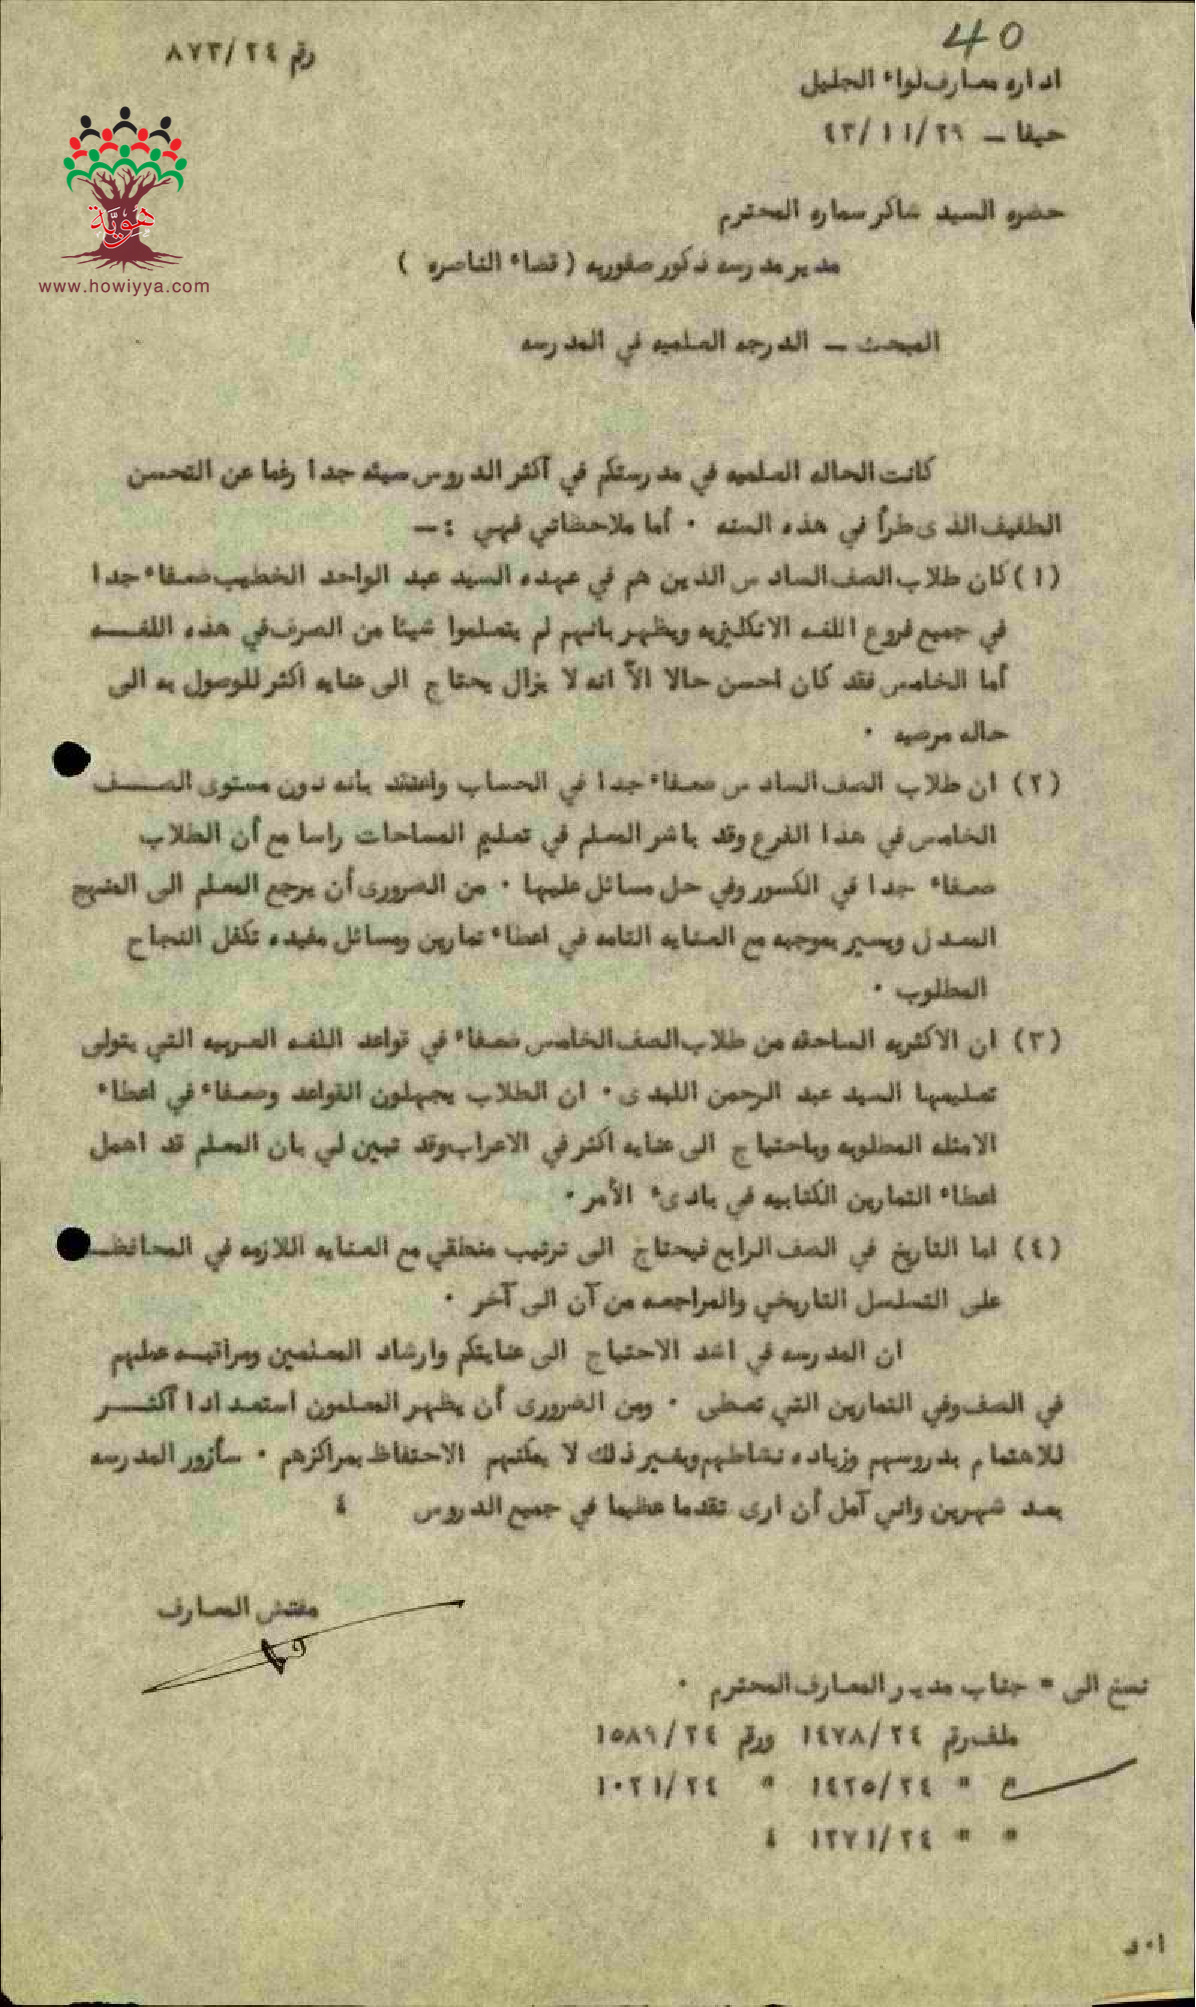 40
رقم ٨٧٣/٢٤
اداره معارف لواء الجليل
حيفا – ٤٣/١١/٢٩
هُوِيَّة
www.howiyya.com
حضره السيد شاكر سماره المحترم
مدير مدرسه ذكور صفوريه ( قضاء الناصره )
المبحث – الدرجه العلميه في المدرسه
كانت الحاله العلميه في مدرستكم في آكثر الدروس سيئه جدا رغما عن التحسن
الطفيف الذى طرأ في هذه السنه ٠ أما ملاحظاتي فهي :–
(١) كان طلاب الصف السادس الذين هم في عهده السيد عبد الواحد الخطيب ضعفاء جدا
في جميع فروع اللغه الانكليزيه ويظهر بانهم لم يتعلموا شيئا من الصرف في هذه اللغــه
أما الخامس فقد كان احسن حالا الآ انه لا يزال يحتاج الى عنايه اكثر للوصول به الى
حاله مرضيه ٠
(٢) ان طلاب الصف السادس ضعفاء جدا في الحساب واعتقد بانه دون مستوى الصــف
الخامس في هذا الفرع وقد باشر المعلم في تعليم المساحات راسا مع أن الطلاب
ضعفاء جدا في الكسور وفي حل مسائل عليها ٠ من الضرورى أن يرجع المعلم الى المنهج
المعدل ويسير بموجبه مع العنايه التامه في اعطاء تمارين ومسائل مفيده تكفل النجاح
المطلوب ٠
(٣) ان الاكثريه الساحقه من طلاب الصف الخامس ضعفاء في قواعد اللغه العربيه التي يتولى
تعليمها السيد عبد الرحمن اللبدى ٠ ان الطلاب يجهلون القواعد وضعفاء في اعطاء
الامثله المطلوبه وباحتياج الى عنايه اكثر في الاعراب وقد تبين لي بان المعلم قد اهمل
اعطاء التمارين الكتابيه في بادىء الأمر ٠
(٤) اما التاريخ في الصف الرابع فيحتاج الى ترتيب منطقي مع العنايه اللازمه في المحافظــه
على التسلسل التاريخي والمراجعه من آن الى آخر ٠
ان المدرسه في اشد الاحتياج الى عنايتكم وارشاد المعلمين ومراقبــه عملهم
في الصف وفي التمارين التي تعطى ٠ ومن الضرورى أن يظهر المعلمون استعدادا آكثــر
للاهتمام بدروسهم وزياده نشاطهم وبغير ذلك لا يمكنهم الاحتفاظ بمراكزهم ٠ سأزور المدرسه
بعد شهرين واني آمل أن ارى تقدما عظيما في جميع الدروس ٤
مفتش المعارف
نسخ الى = جناب مدير المعارف المحترم ٠
ملف رقم ١٤٧٨/٢٤ ورقم ١٥٨٩/٢٤
" " ١٤٢٥/٢٤ " ١٠٢١/٢٤
" " ١٢٧١/٢٤ ٤
ا٠د